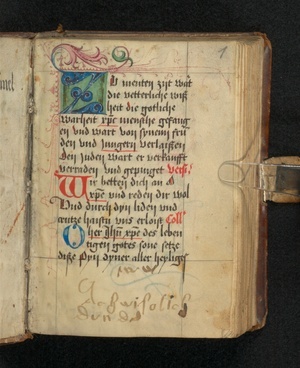 1
Zů menten zijt wart
die vetterliche wiß
heit die gotliche
warheit xp̄c mensche gefang
en vnd wart von synem frū
den vnd Jungern verlaissen
Den Juden wart er verkaufft
verraden vnd gepinget versi.
Wir betten dich an O
xp̄e vnd reden dir wol
Und durch dyn liden vnd
crütze haistu vns erloist Coll'
O her Jhū xp̄e des leben
tigen gotes sone setze
diße Pyn dyner aller heyligst